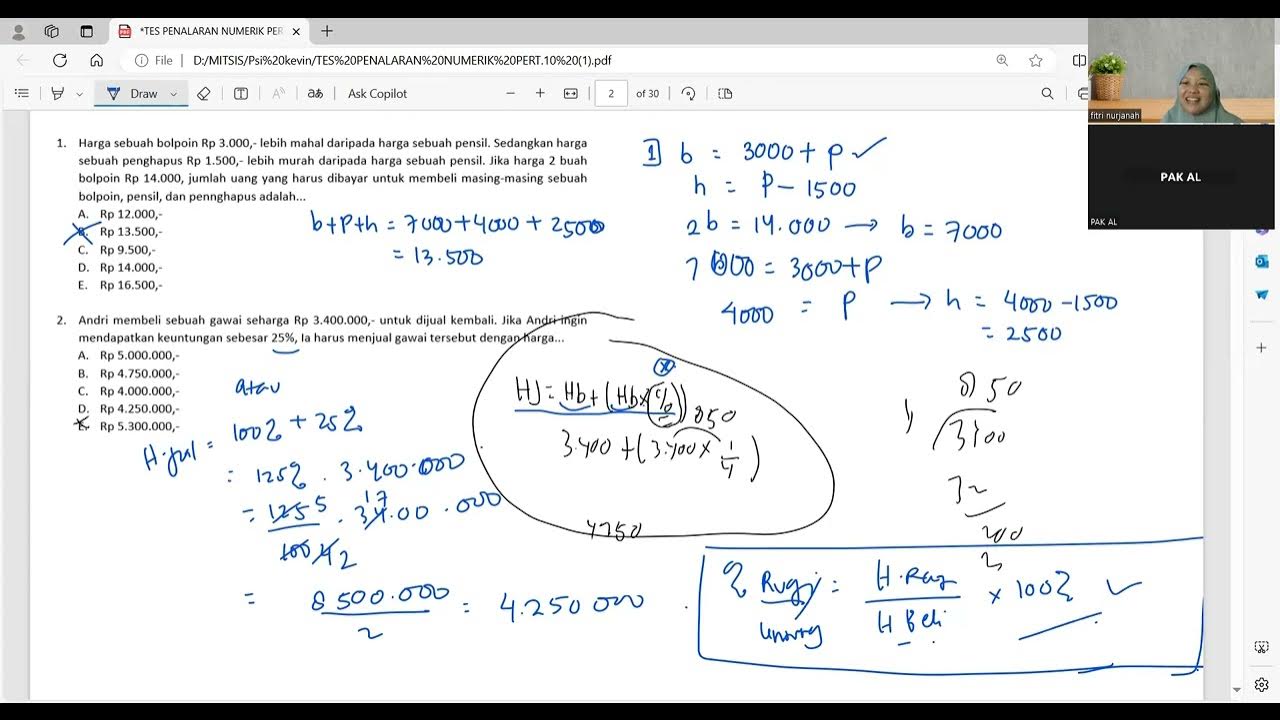 *TES PENALARAN NUMERIK PER
File
D:/MITSIS/Psi%20kevin/TES%20PENALARAN%20NUMERIK%20PERT.10%20(1).pdf
Draw
Ask Copilot
2
of 30
fitri nurjanah
PAK AL
PAK AL
1. Harga sebuah bolpoin Rp 3.000,- lebih mahal daripada harga sebuah pensil. Sedangkan harga
sebuah penghapus Rp 1.500,- lebih murah daripada harga sebuah pensil. Jika harga 2 buah
bolpoin Rp 14.000, jumlah uang yang harus dibayar untuk membeli masing-masing sebuah
bolpoin, pensil, dan pennghapus adalah...
A. Rp 12.000,-
B. Rp 13.500,-
C. Rp 9.500,-
D. Rp 14.000,-
E. Rp 16.500,-
b+p+h = 7000+4000+2500
= 13.500
1 b = 3000+p ✓
h = p-1500
2b = 14.000 → b = 7000
7000 = 3000+p
4000 = p → h = 4000-1500
= 2500
2. Andri membeli sebuah gawai seharga Rp 3.400.000,- untuk dijual kembali. Jika Andri ingin
mendapatkan keuntungan sebesar 25%, Ia harus menjual gawai tersebut dengan harga...
A. Rp 5.000.000,-
B. Rp 4.750.000,-
C. Rp 4.000.000,-
D. Rp 4.250.000,-
E. Rp 5.300.000,-
atau
H.jual = 100% + 25%
= 125% . 3.400.000
= 125 5 . 17 34.00.000
100 4 2
= 8.500.000 = 4.250.000
2
HJ = Hb+(Hb×%)
850
3.400+(3.400×1/4)
4250
850
3400
32
200
2
% Rugi = H.Rug × 100% ✓
Untung H Beli